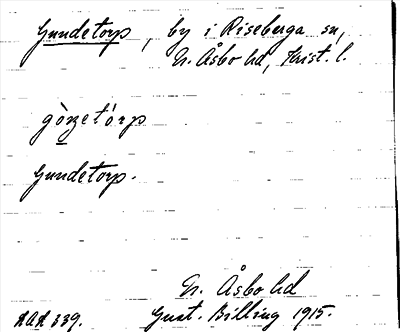 Gundetorp, by i Riseberga sn,
N. Åsbo hd, Krist. l.
Gundetorp.
N. Åsbo hd
Gust. Billing 1915.